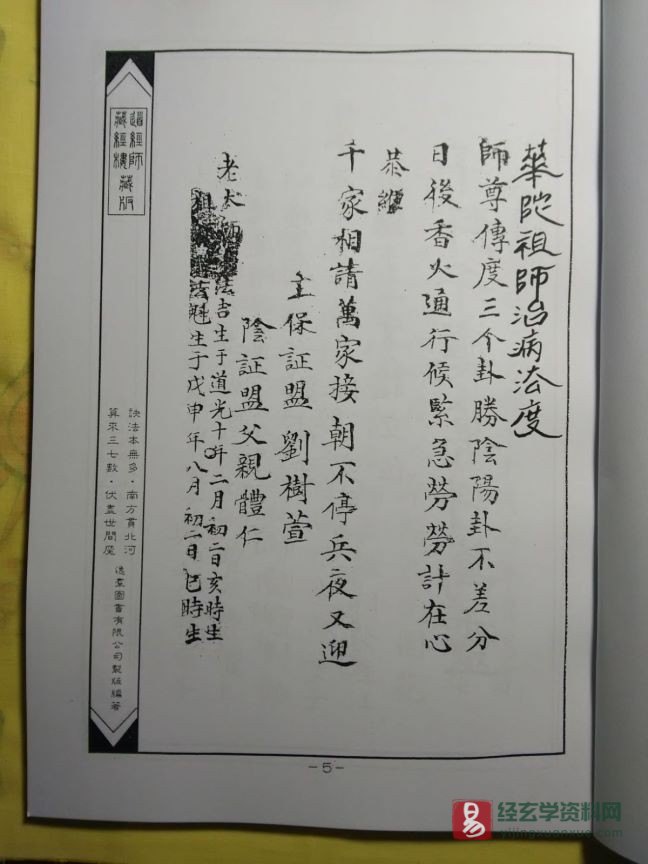 華陀祖師治病法度
師尊傳度三个卦勝陰陽卦不差分
日後香火通行候緊急勞勞計在心
恭維
千家相請萬家接朝不停兵夜又迎
主保証盟劉樹萱
陰証盟父親體仁
老太師 法吉生于道光十年二月初二日亥時生
祖 法魁生于戊申年八月初二日巳時生
道經師
藏經樓藏版
訣法本無多·南方貫北河
算來三七數·伏盡世間魔
逸群圖書有限公司製版編著
-5-
易
经玄学资料网
yijingxuanxue.com